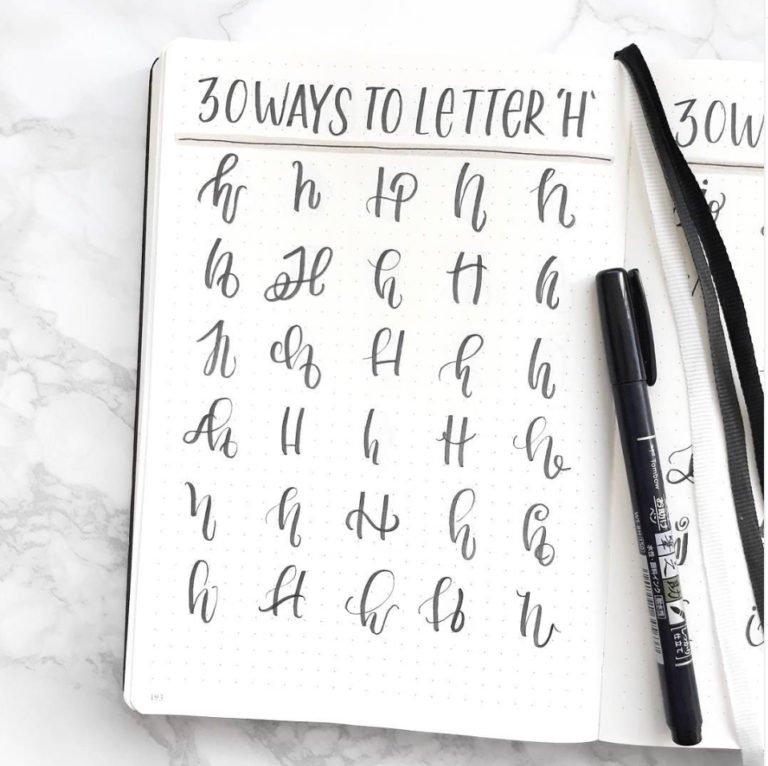 30 WAYS TO LETTER 'H'
h h H h h
h H h H h
h h H h h
h H h H h
h h H h h
h H h H h
193
30W
Tombow
筆之助
しっかり仕立て